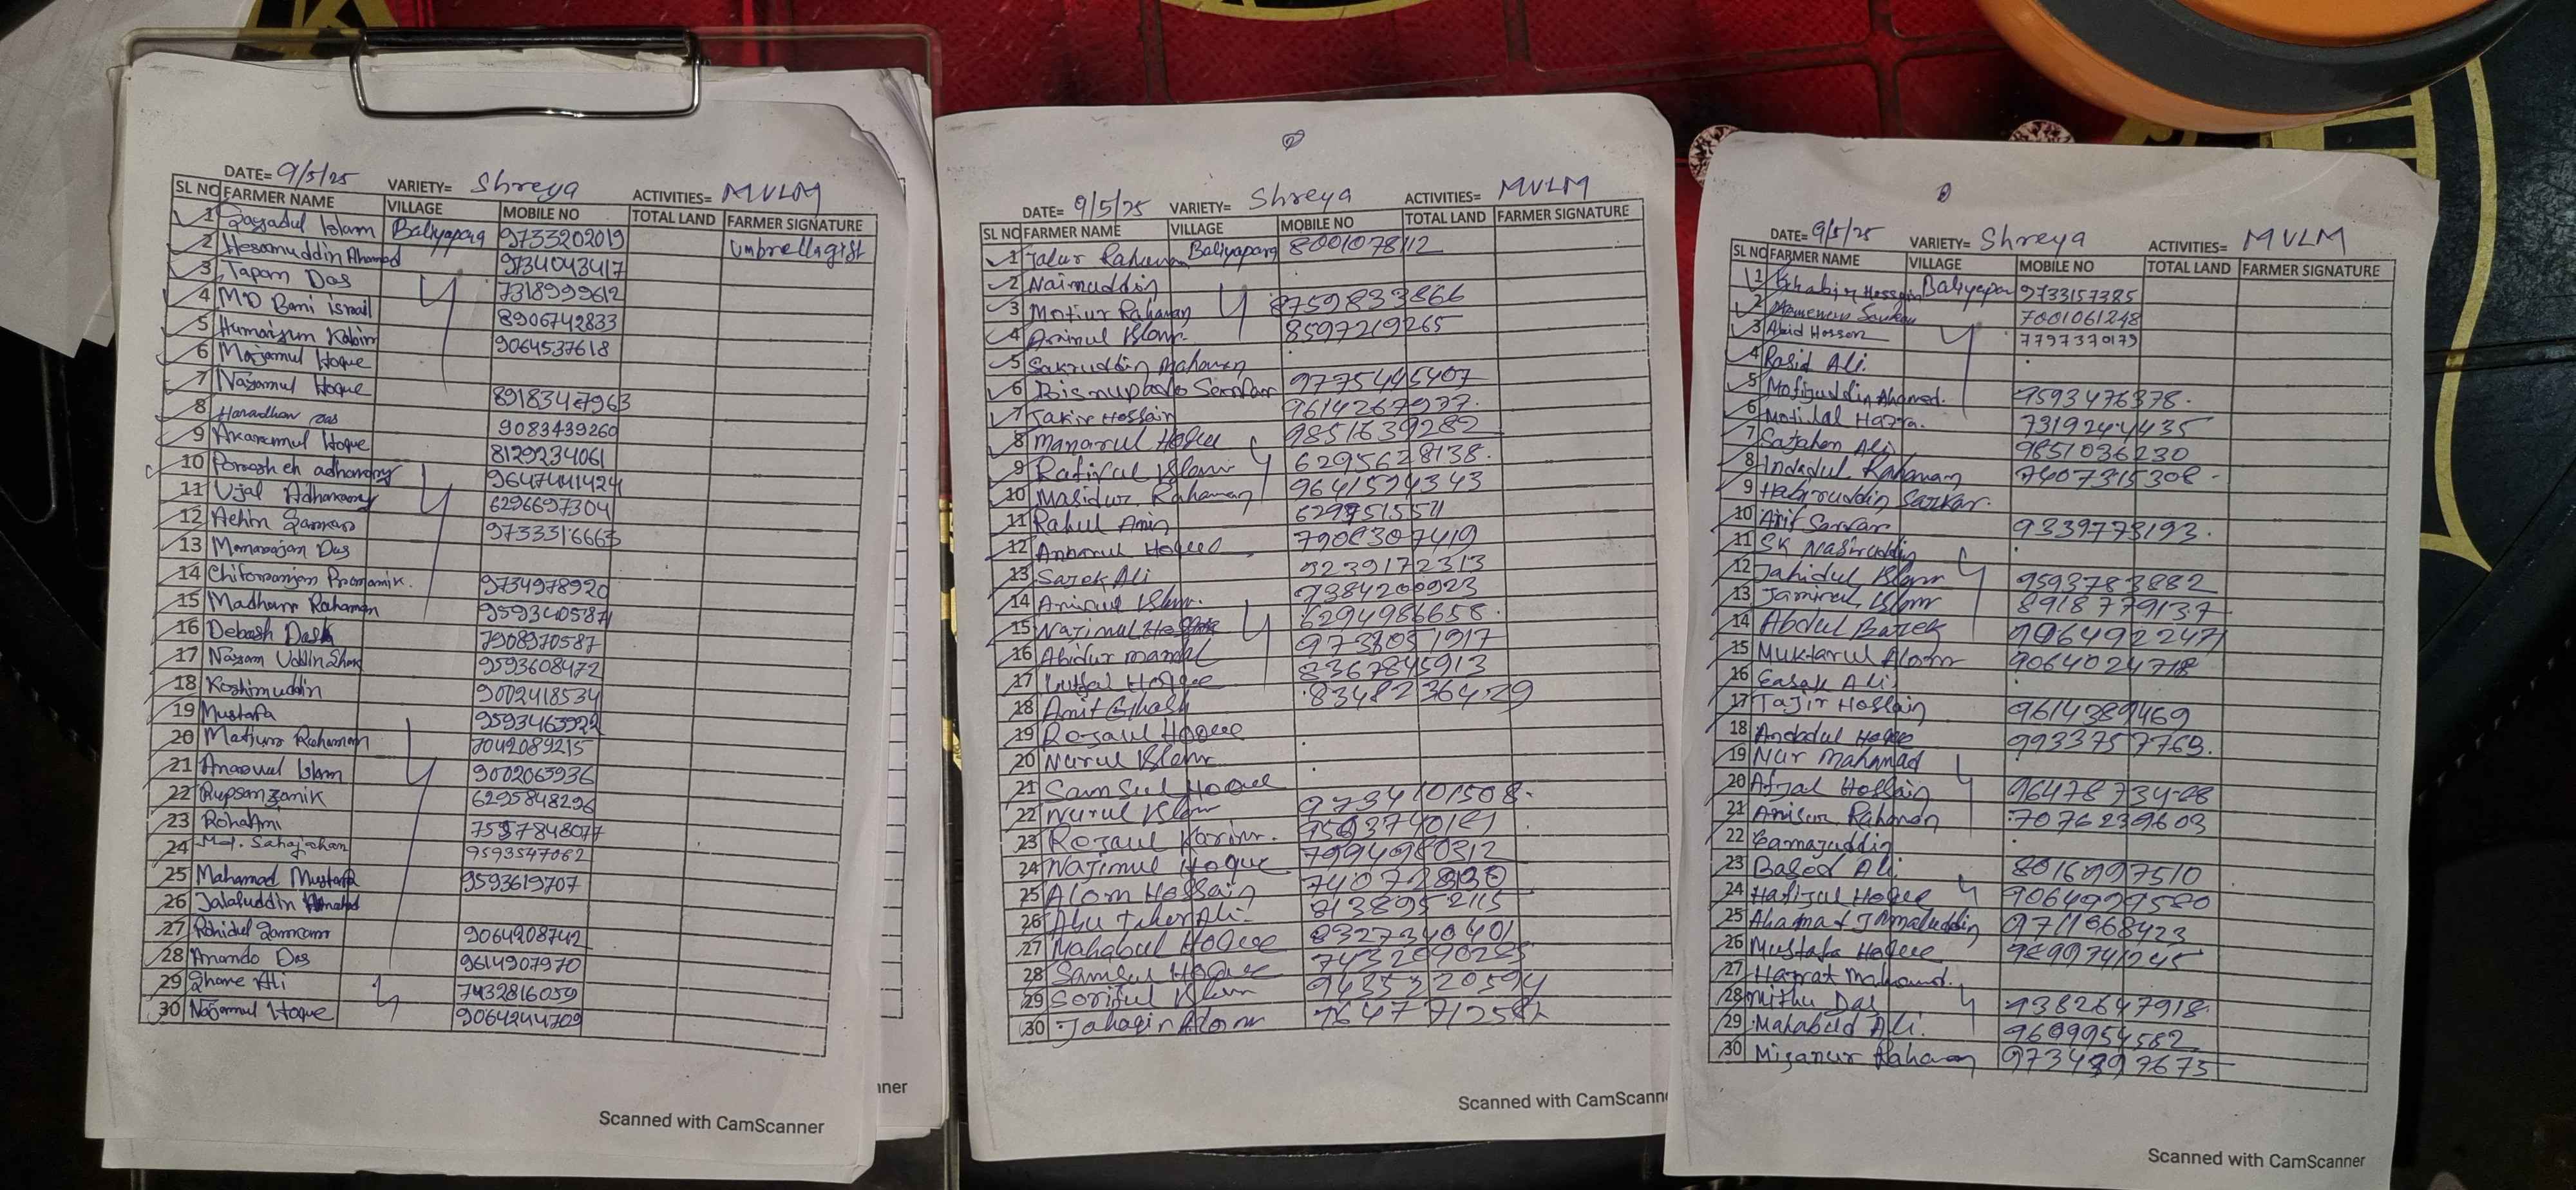 DATE= 9/5/25 VARIETY= Shreya ACTIVITIES= MVLM
SL NO FARMER NAME VILLAGE MOBILE NO TOTAL LAND FARMER SIGNATURE
1 Sazzadul Islam Baliyapara 9733202019 Umbrella gist
2 Hesamuddin Ahamed 9734043417
3 Tapan Das 7318999612
4 MD Bani israil 8906742833
5 Humaiyun Kabir 9064537618
6 Mojamul Hoque
7 Nazamul Hoque 8918347963
8 Haradhan Das 9083439260
9 Akramul Hoque 8129234061
10 adhanary 9647441424
11 Ujal Adhanary 6296697304
12 9733316663
13 Manaranjan Das
14 Chitoranjan Pramanik. 9734978920
15 Rahaman 9593405871
16 Debash Das 7908970587
17 Nazam Uddin 9593608472
18 Koshimuddin 9002418534
19 Mustafa 9593463922
20 Rahaman 7042089215
21 Islam 9002063936
22 6295848296
23 7557848077
24 Md. Sahajahan 9593547062
25 Mahamad Mustafa 9593619707
26 Jalaluddin
27 9064208742
28 Anando Das 9614907970
29 Ali 7432816059
30 Nazamul Hoque 9064244709
Scanned with CamScanner
nner
2
DATE= 9/5/25 VARIETY= Shreya ACTIVITIES= MVLM
SL NO FARMER NAME VILLAGE MOBILE NO TOTAL LAND FARMER SIGNATURE
1 Rahaman Baliyapara 8001078112
2 Naimuddin
3 Motiur Rahaman 8759833866
4 Aminul Islam 8597219265
5 Sakruddin Mahaman
6 Bisnupado Sarkar 9775445407
7 Jakir Hossain 9614267977.
8 Manarul Hoque 9851639282
9 Rafikul Islam 6295628138.
10 Masidur Rahaman 9641594343
11 Rahul Amin
12 Anbarul Hoque
13 Sarek Ali 9239172313
14 Islam. 9384200923
15 Najimul 6294986658.
16 Abidur
17 Lutfal Hoque 8367845913
18 Amit Ghash 8348236429
19 Rojaul Hoque
20 Nurul Islam
21 Samsul Hoque
22 Nurul Islam 9734101508.
23 Rojaul Karim.
24 Najimul Hoque 7994980312
25 Alom Hossain
26 Abu Taher Ali. 8138952115
27 Mahabul Hoque 8327340401
28 Samsul Hoque
29 Soriful Islam
30 Jahagir Alom
Scanned with CamScann
DATE= 9/5/25 VARIETY= Shreya ACTIVITIES= MVLM
SL NO FARMER NAME VILLAGE MOBILE NO TOTAL LAND FARMER SIGNATURE
1 Hossain Baliyapar 9733157385
2 Sarkar 7001061248
3 Abid Hosson 7797370179
4 Rasid Ali.
5 Mofijuddin Ahamed. 9593476378.
6 Motilal Hazra. 7319244435
7 Sajahan Ali 9851036230
8 Indadul Rahaman 7407315308
9 Habiruddin Sarkar.
10 Arif Sarkar 9339773193.
11 SK Nasiruddin
12 Jahidul Islam 9593783882
13 Jamirul Islam 8918779137
14 Abdul Barek
15 Muktarul Alom 9064024718
16 Easak Ali
17 Tajir Hossain 9614389469
18 Hoque 9933757763.
19 Nur Mahamad
20 Afjal Hossain
21 Anisur Rahaman 7076239603
22
23 Ali. 8016997510
24 Hafijul Hoque 9064999580
25 Ahamad Jamaluddin
26 Mustafa Hoque
27 Hazrat
28 Mithu Das 9382647918
29 Mahabud Ali. 9609954582
30 Mizanur Rahaman
Scanned with CamScanner